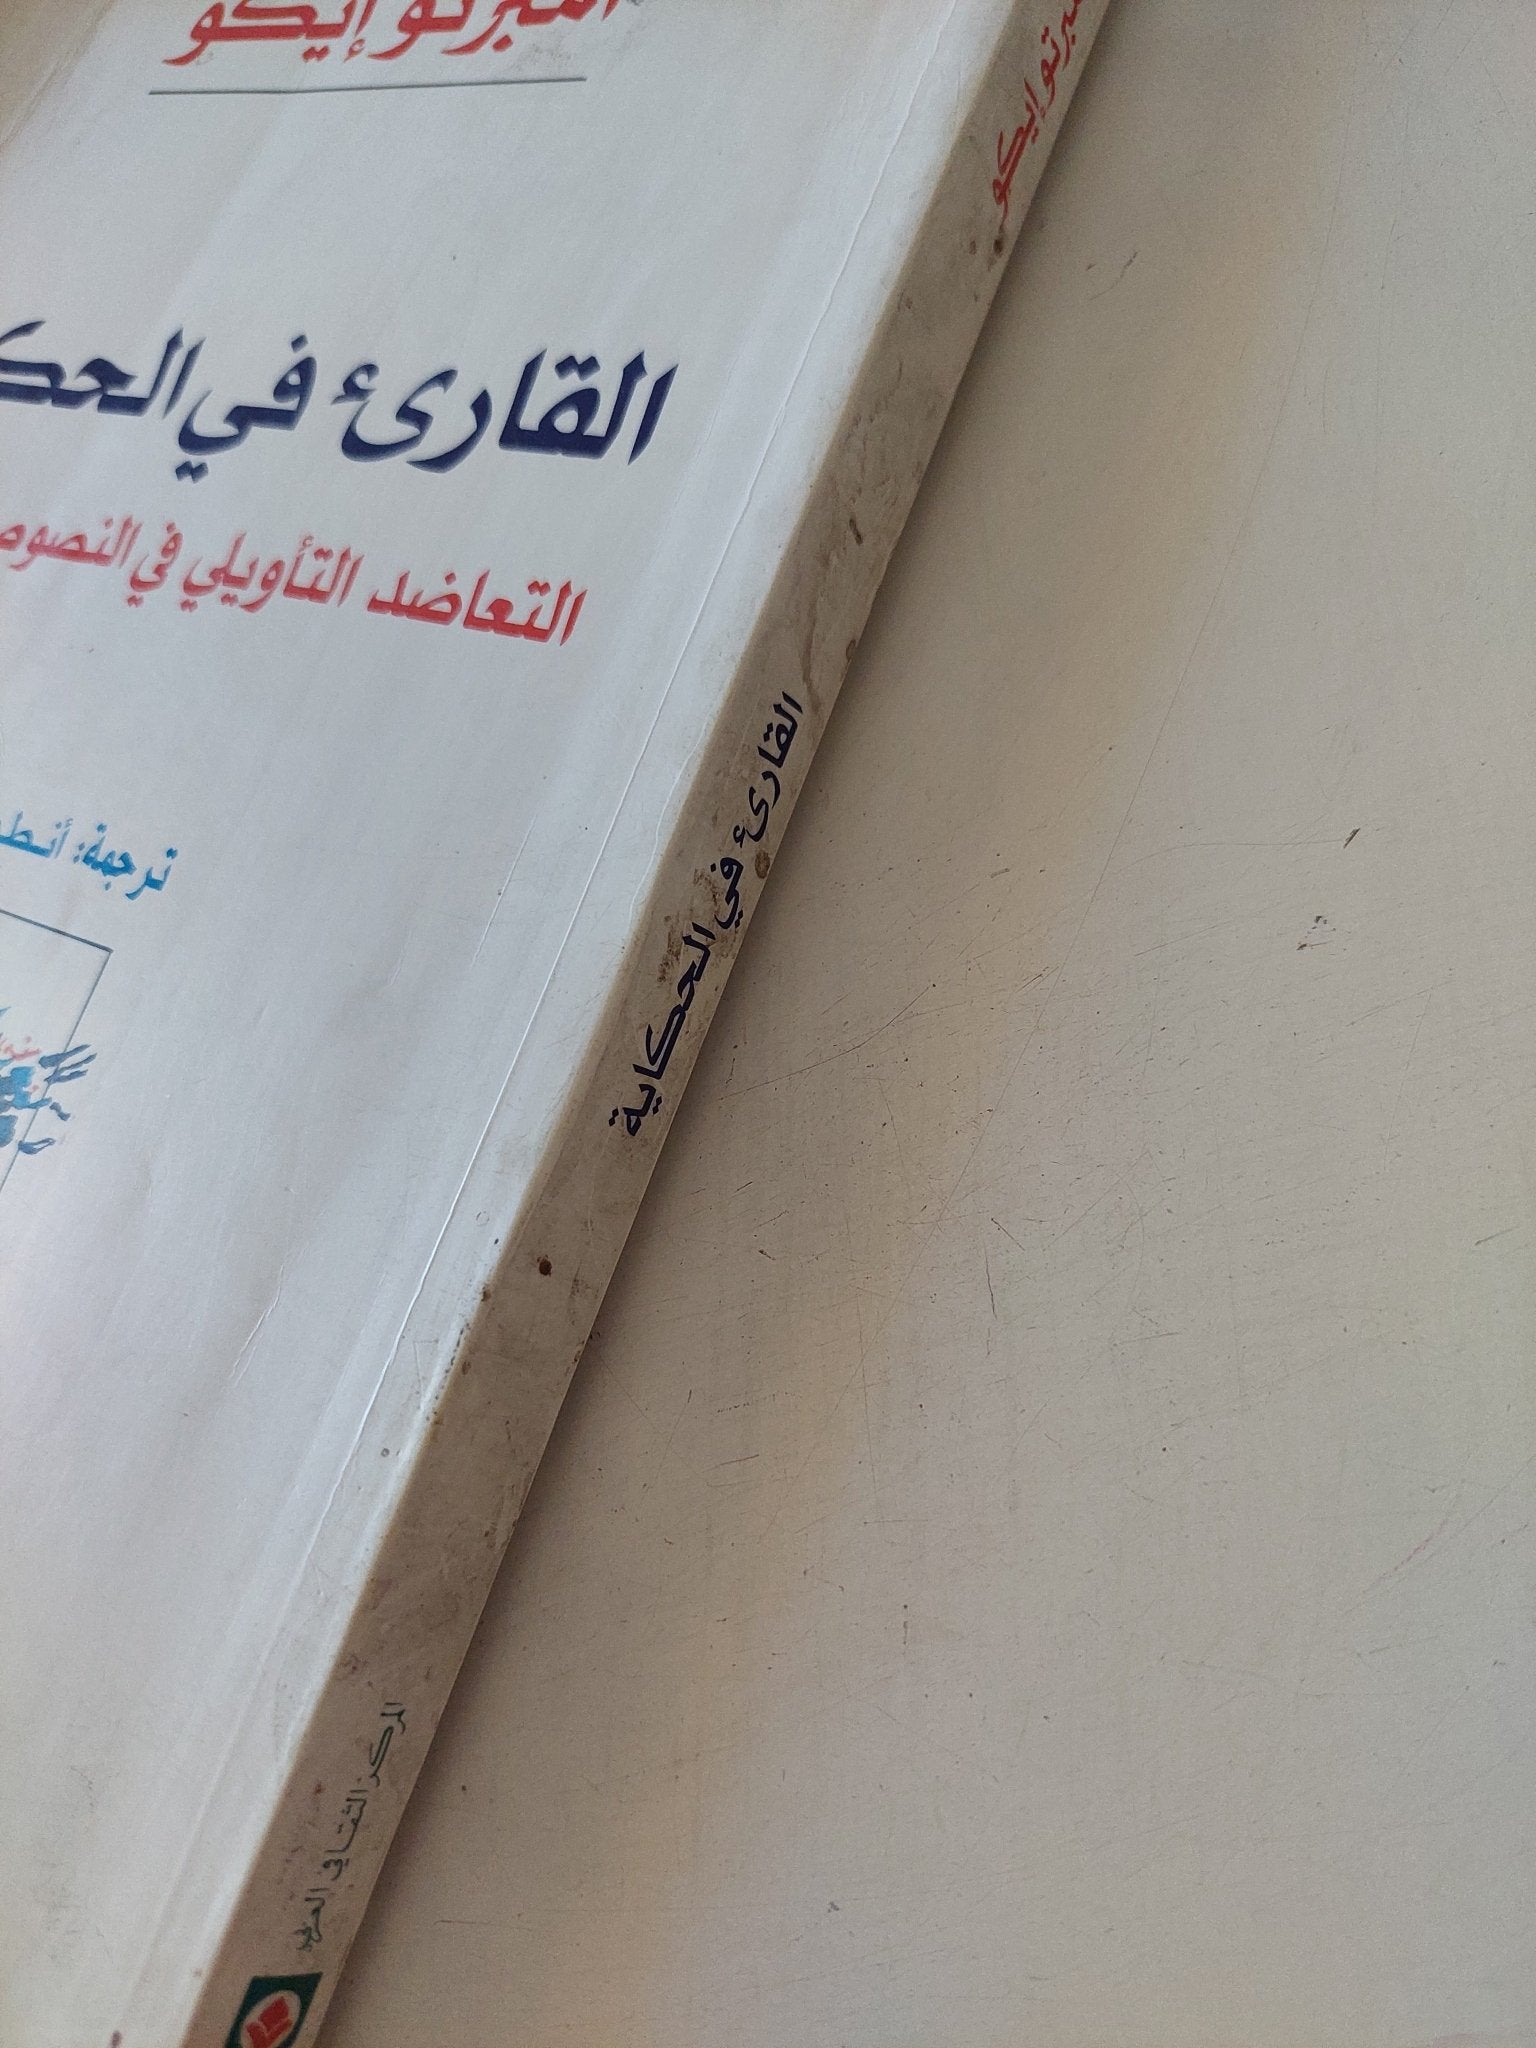 أمبرتو إيكو
القارئ في الحك
التعاضد التأويلي في النصوص
ترجمة: أنط
أمبرتو إيكو
القارئ في الحكاية
المركز الثقافي العربي